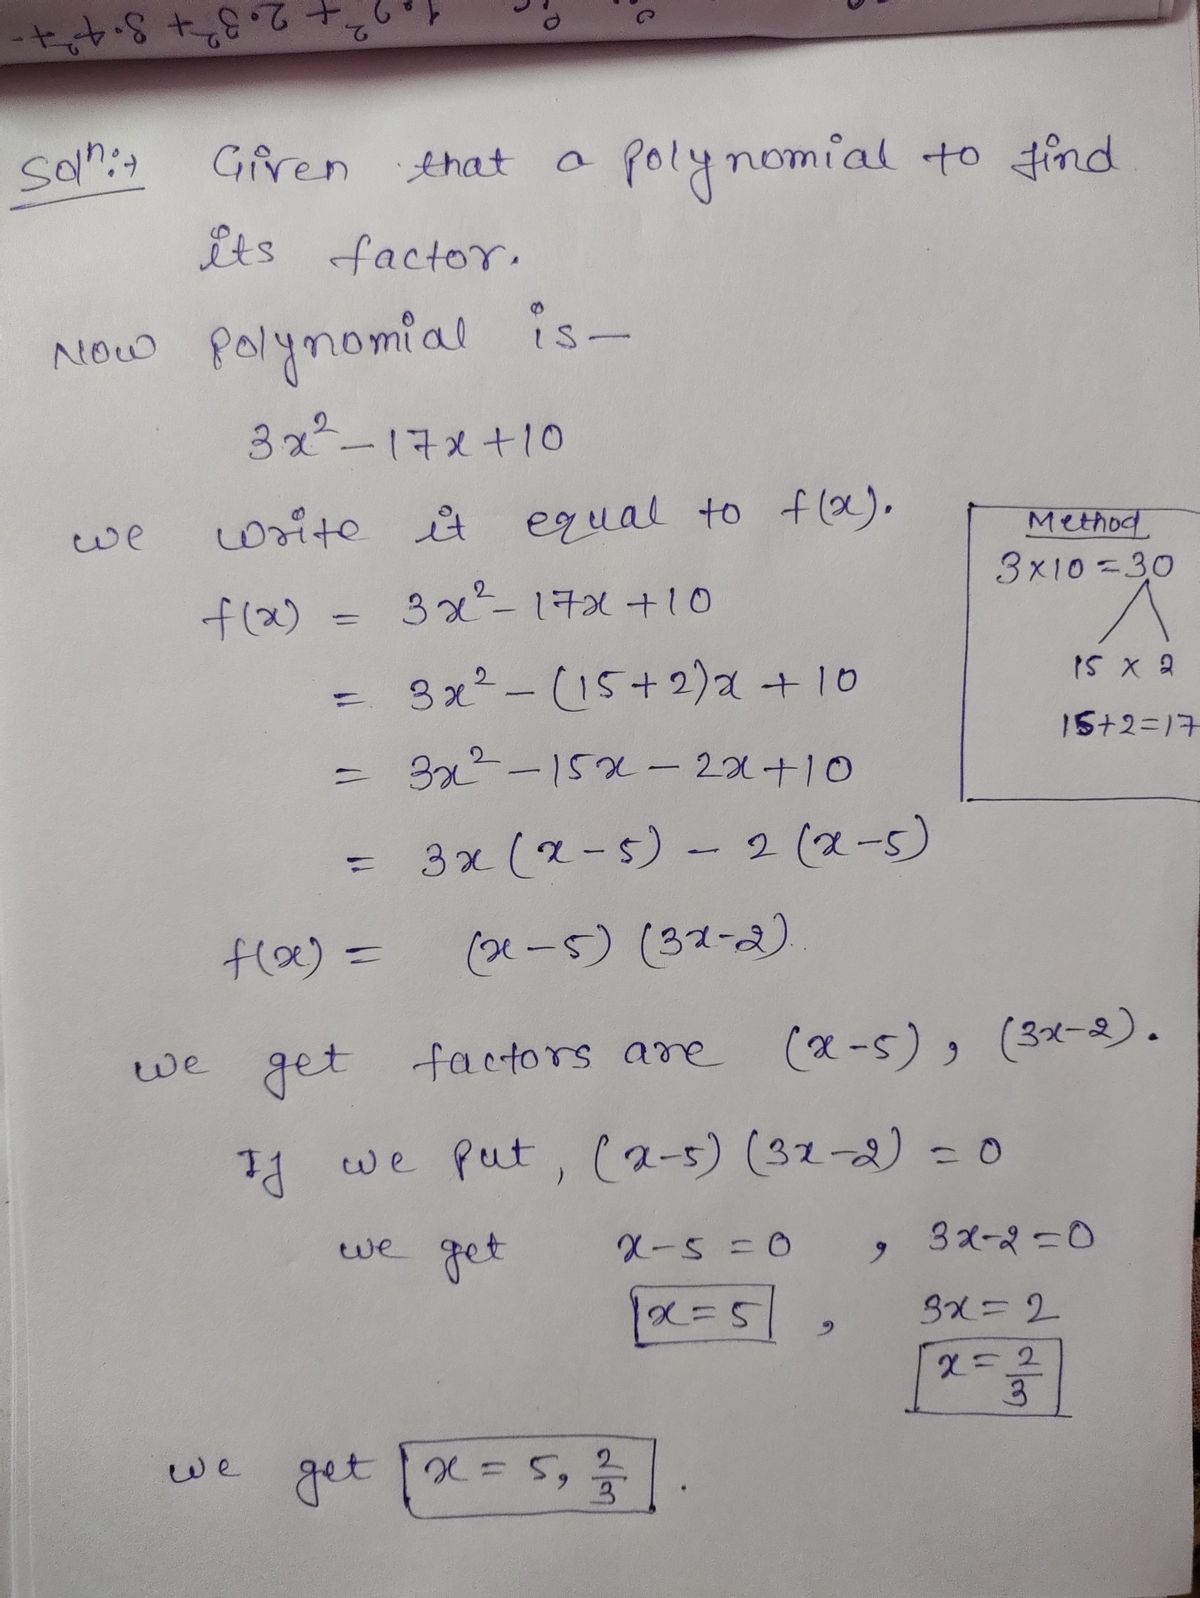 1.2² + 2.3² + 3.4² +
Solⁿ:→ Given that a polynomial to find
its factor.
Now polynomial is —
3x² - 17x + 10
we write it equal to f(x).
f(x) = 3x² - 17x + 10
= 3x² - (15+2)x + 10
= 3x² - 15x - 2x + 10
= 3x(x-5) - 2(x-5)
f(x) = (x-5) (3x-2).
Method
3×10 = 30
15 × 2
15+2=17
we get factors are (x-5), (3x-2).
If we put, (x-5) (3x-2) = 0
we get x-5 = 0 , 3x-2 = 0
x = 5 , 3x = 2
x = 2/3
we get x = 5, 2/3 .